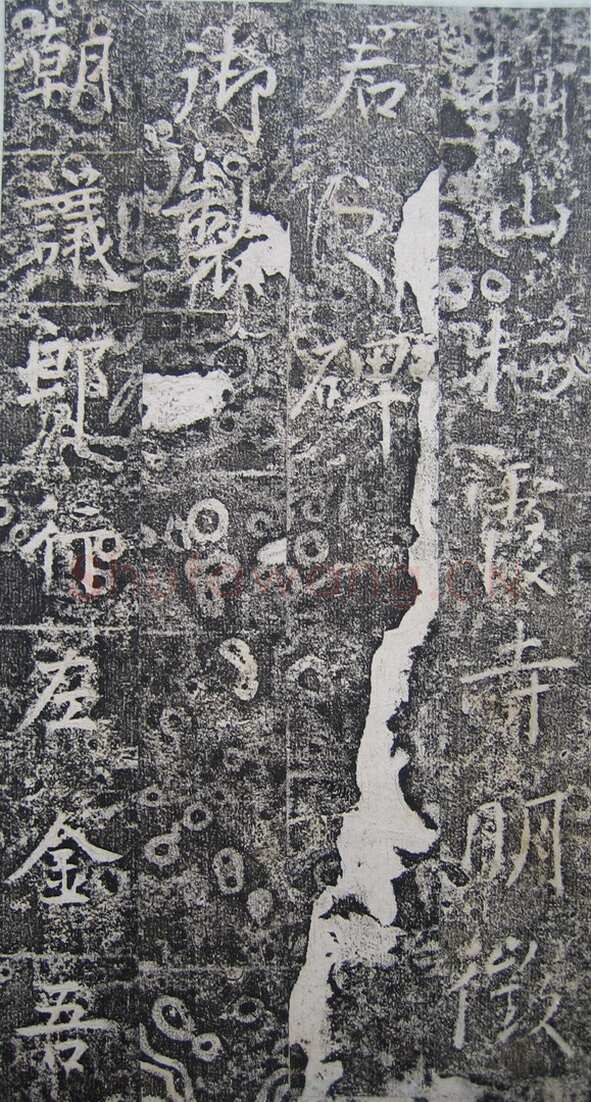 山霞寺明徵
君之碑
御製
朝議郎行左金吾
shufawang.CN